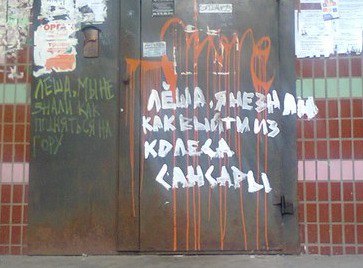 ОРГА
ЛЁША, МЫ НЕ
ЗНАЛИ КАК
ПОДНЯТЬСЯ НА
ГОРУ
ЛЁША, Я НЕ ЗНАЛ
КАК ВЫЙТИ ИЗ
КОЛЕСА
САНСАРЫ